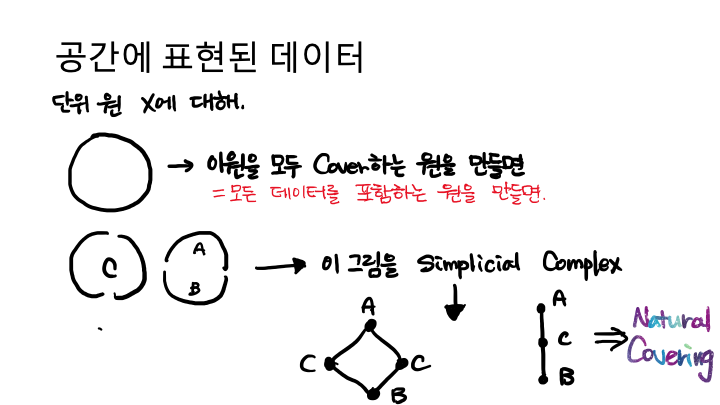 공간에 표현된 데이터
단위 원 X에 대해.
→ 이원을 모두 Cover하는 원을 만들면
= 모든 데이터를 포함하는 원을 만들면.
C
A
B
→ 이 그림을 Simplicial Complex
A
C
C
B
A
C
B
⇒ Natural
Covering